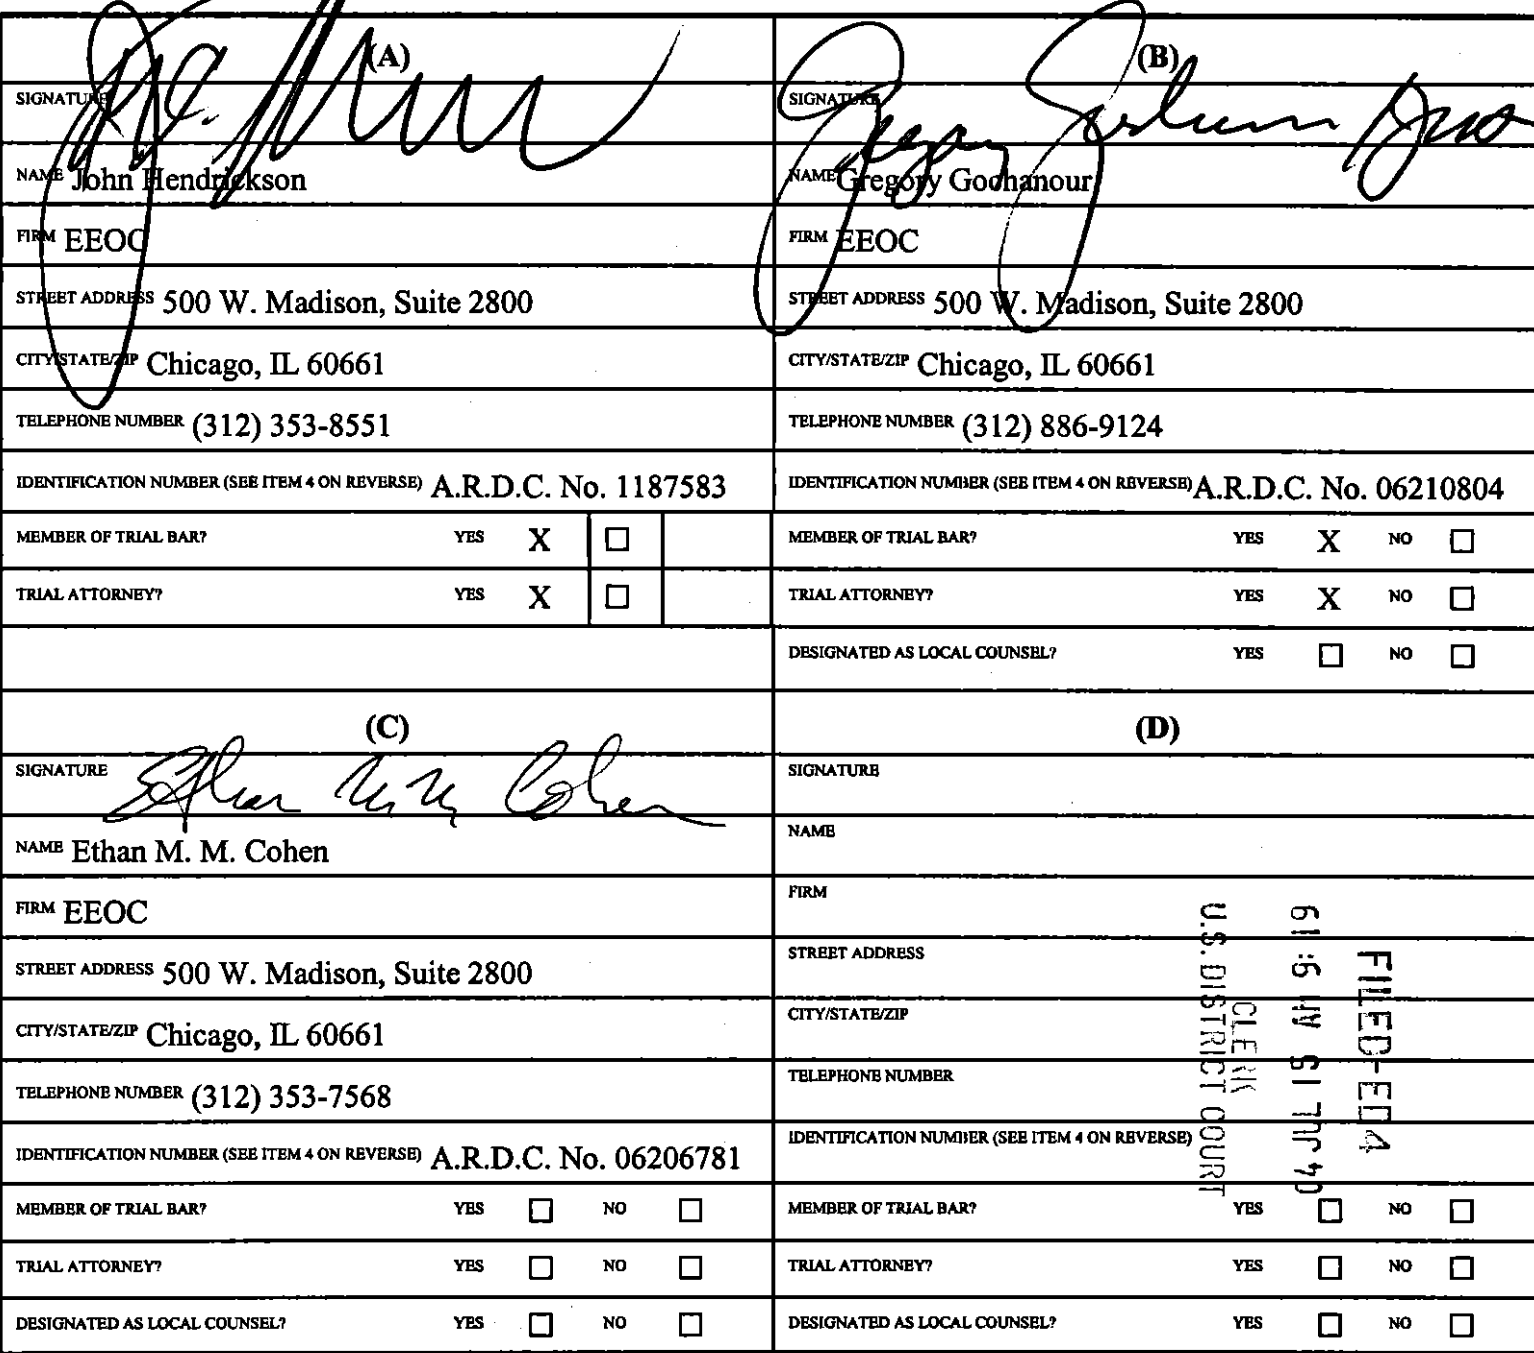 (A)
SIGNATURE
NAME John Hendrickson
FIRM EEOC
STREET ADDRESS 500 W. Madison, Suite 2800
CITY/STATE/ZIP Chicago, IL 60661
TELEPHONE NUMBER (312) 353-8551
IDENTIFICATION NUMBER (SEE ITEM 4 ON REVERSE) A.R.D.C. No. 1187583
MEMBER OF TRIAL BAR? YES X ☐
TRIAL ATTORNEY? YES X ☐
(B)
SIGNATURE
NAME Gregory Gochanour
FIRM EEOC
STREET ADDRESS 500 W. Madison, Suite 2800
CITY/STATE/ZIP Chicago, IL 60661
TELEPHONE NUMBER (312) 886-9124
IDENTIFICATION NUMBER (SEE ITEM 4 ON REVERSE) A.R.D.C. No. 06210804
MEMBER OF TRIAL BAR? YES X NO ☐
TRIAL ATTORNEY? YES X NO ☐
DESIGNATED AS LOCAL COUNSEL? YES ☐ NO ☐
(C)
SIGNATURE Ethan M. M. Cohen
NAME Ethan M. M. Cohen
FIRM EEOC
STREET ADDRESS 500 W. Madison, Suite 2800
CITY/STATE/ZIP Chicago, IL 60661
TELEPHONE NUMBER (312) 353-7568
IDENTIFICATION NUMBER (SEE ITEM 4 ON REVERSE) A.R.D.C. No. 06206781
MEMBER OF TRIAL BAR? YES ☐ NO ☐
TRIAL ATTORNEY? YES ☐ NO ☐
DESIGNATED AS LOCAL COUNSEL? YES ☐ NO ☐
(D)
SIGNATURE
NAME
FIRM
STREET ADDRESS
CITY/STATE/ZIP
TELEPHONE NUMBER
IDENTIFICATION NUMBER (SEE ITEM 4 ON REVERSE)
MEMBER OF TRIAL BAR? YES ☐ NO ☐
TRIAL ATTORNEY? YES ☐ NO ☐
DESIGNATED AS LOCAL COUNSEL? YES ☐ NO ☐
FILED-ED4
04 JUL 15 AM 9:19
CLERK
U.S. DISTRICT COURT